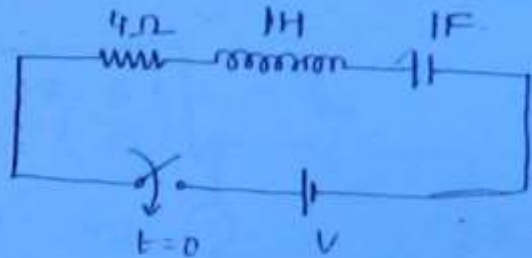 4Ω 1H 1F
t=0 V